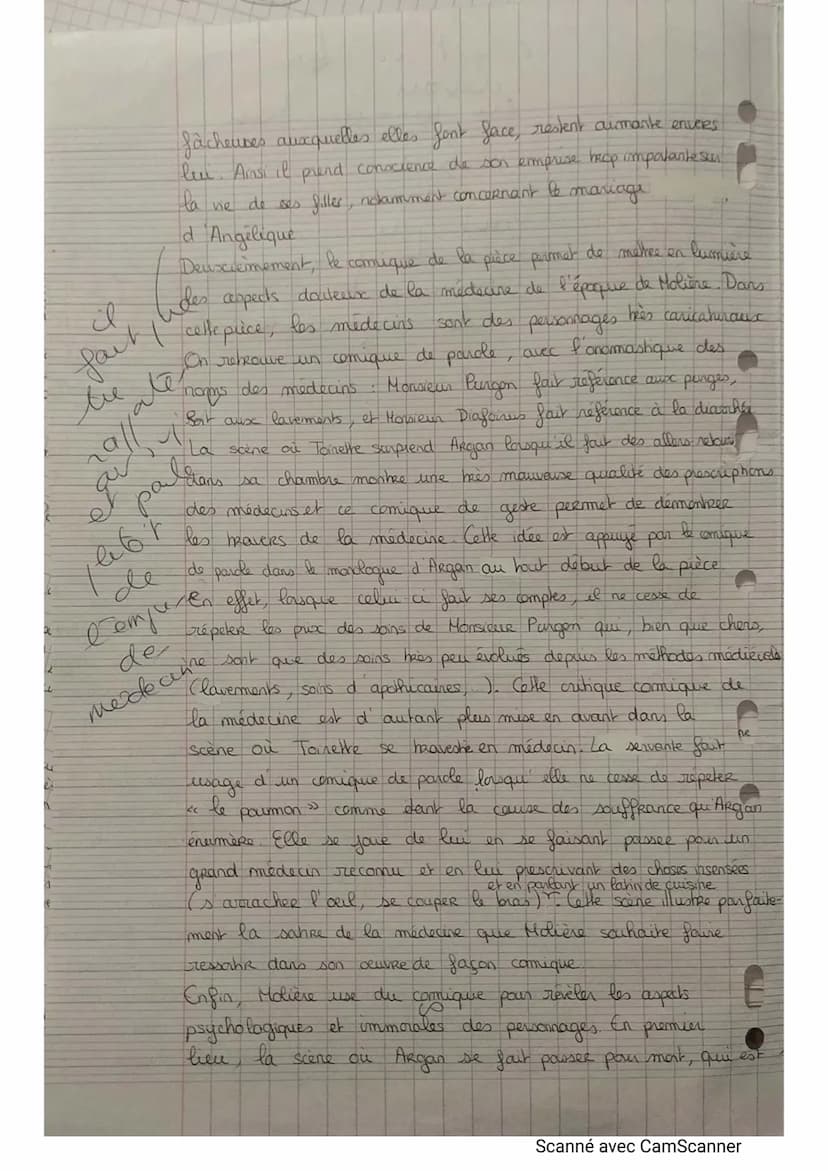 fâcheuses auxquelles elles font face, restent aimante envers
lui. Ainsi il prend conscience de son emprise trop importante sur
la vie de ses filles, notamment concernant le mariage
d'Angélique
Deuxièmement, le comique de la pièce permet de mettre en lumière
des aspects douteux de la médecine de l'époque de Molière. Dans
cette pièce, les médecins sont des personnages très caricaturaux
On retrouve un comique de parole, avec l'onomastique des
noms des médecins : Monsieur Purgon fait référence aux purges,
soit aux lavements, et Monsieur Diafoirus fait référence à la diarrhée
La scène où Toinette surprend Argan lorsqu'il fait des allers-retours
dans sa chambre montre une très mauvaise qualité des prescriptions
des médecins et ce comique de geste permet de démontrer
les travers de la médecine. Cette idée est appuyé par le comique
de parole dans le monologue d'Argan au tout début de la pièce
En effet, lorsque celui ci fait ses comptes, il ne cesse de
répéter les prix des soins de Monsieur Purgon qui, bien que chers,
ne sont que des soins très peu évolués depuis les méthodes médiévale
(lavements, soins d'apothicaires, ). Cette critique comique de
la médecine est d'autant plus mise en avant dans la
scène où Toinette se traveste en médecin. La servante fait
usage d'un comique de parole lorsqu'elle ne cesse de répéter
« le poumon » comme étant la cause des souffrance qu'Argan
énumère. Elle se joue de lui en se faisant passer pour un
grand médecin reconnu et en lui prescrivant des choses insensées
et en parlant un latin de cuisine
(s'arracher l'oeil, se couper le bras). Cette scène illustre parfaite-
ment la satire de la médecine que Molière souhaite faire
ressortir dans son oeuvre de façon comique
Enfin, Molière use du comique pour révéler les aspects
psychologiques et immorales des personnages. En premier
lieu, la scène où Argan se fait passer pour mort, qui est
il
faut
et
de
de
médecine
Scanné avec CamScanner